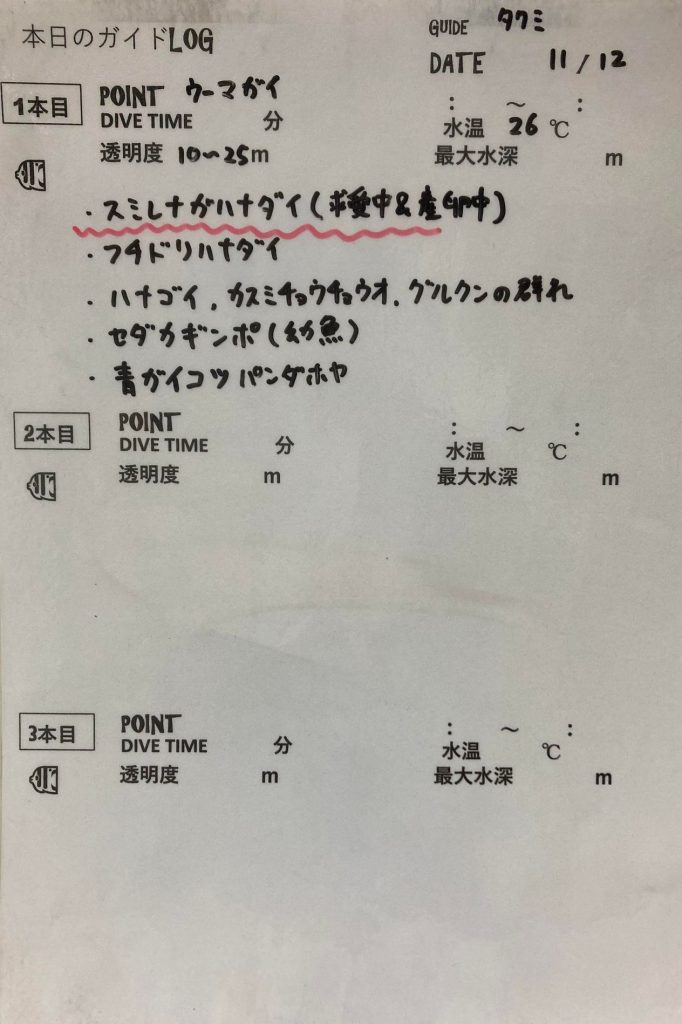 本日のガイドLOG
GUIDE タクミ
DATE 11/12
1本目 POINT ウーマガイ : ～ :
DIVE TIME 分 水温 26 ℃
透明度 10～25m 最大水深 m
・スミレナガハナダイ(求愛中&産卵中)
・フチドリハナダイ
・ハナゴイ, カスミチョウチョウオ, グルクンの群れ
・セダカギンポ(幼魚)
・青ガイコツパンダホヤ
2本目 POINT : ～ :
DIVE TIME 分 水温 ℃
透明度 m 最大水深 m
3本目 POINT : ～ :
DIVE TIME 分 水温 ℃
透明度 m 最大水深 m